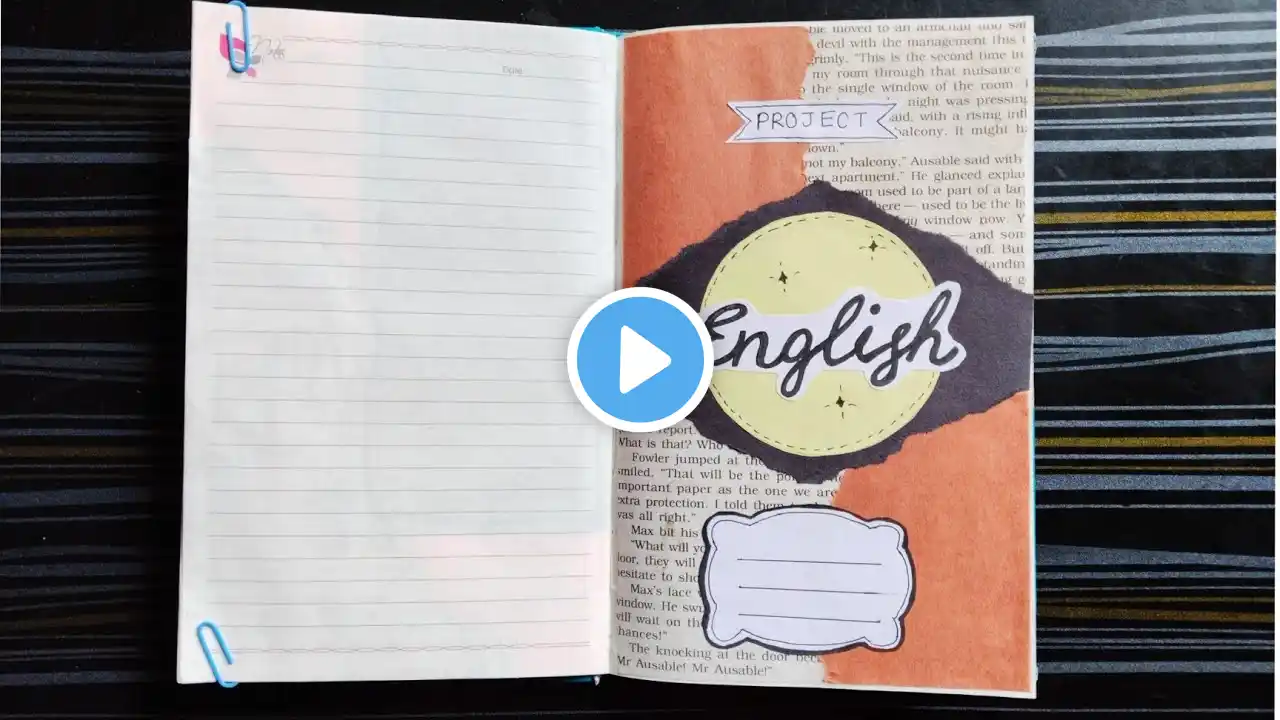 Notes
Date
ble moved to an armchair and sat
devil with the management this t
grimly. "This is the second time in
my room through that nuisance
the single window of the room.
night was pressing
PROJECT
said, with a rising infl
balcony. It might h
own."
not my balcony," Ausable said with
next apartment." He glanced explai
om used to be part of a lar
here — used to be the li
my window now. Y
— and som
t off. But
standin
g g
English
report.
What is that? Who
Fowler jumped at the
smiled. "That will be the po
important paper as the one we are
extra protection. I told them
was all right."
Max bit his
"What will yo
door, they will
hesitate to sho
Max's face
window. He swu
will wait on th
chances!"
The knocking at the door bec
Mr Ausable! Mr Ausable!"